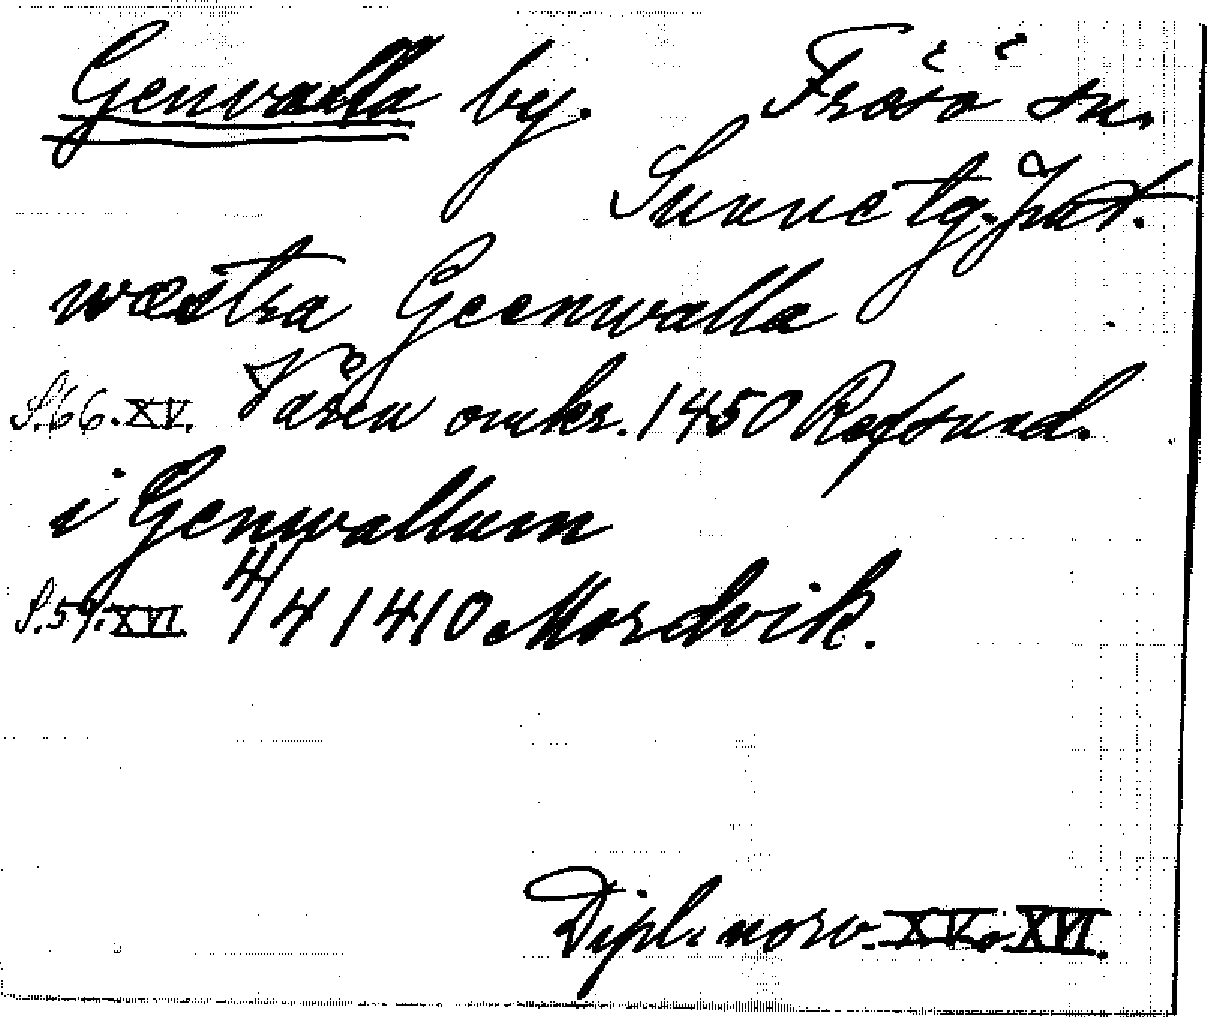 Genvalla by. Frösö sn.
Sunne tg. Jmt.
wæstra Geenwalla
S.66.XV. Våren omkr. 1450 Refsund.
i Genwallum
S.59.XVI. 4/4 1410 Mordvik.
Dipl. norv. XV o XVI.